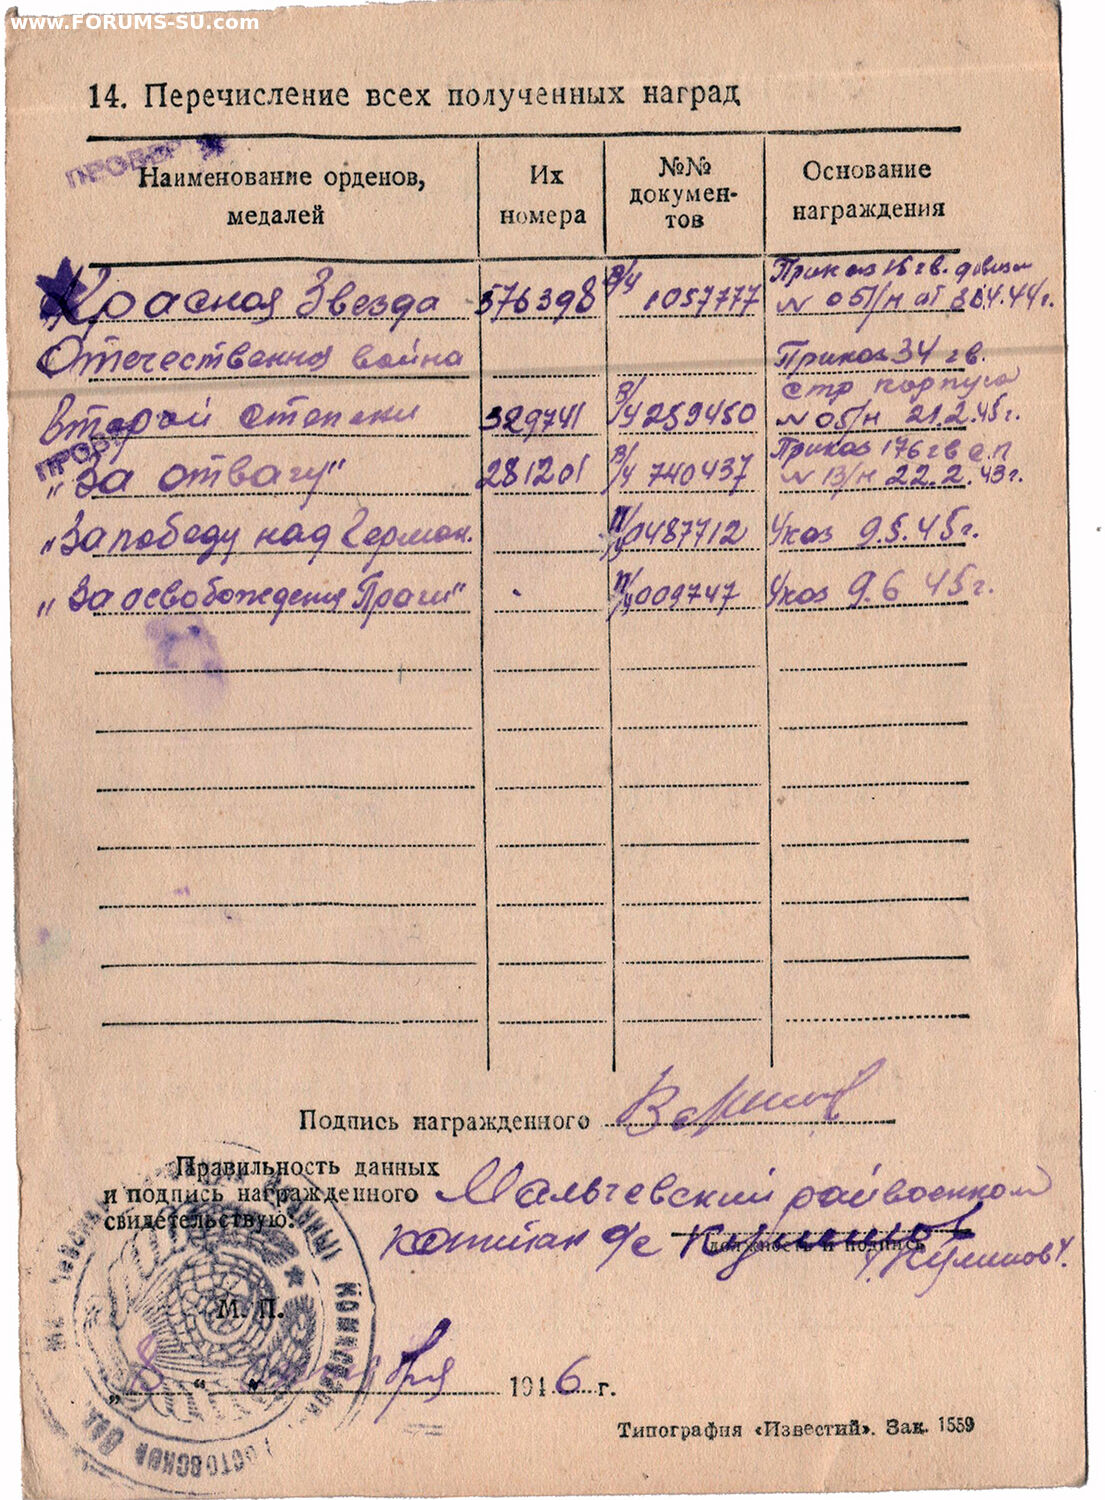 www.FORUMS-SU.com
14. Перечисление всех полученных наград
Наименование орденов, медалей
Их номера
№№ докумен-тов
Основание награждения
Красная Звезда 576398 В/ч 1057777 Приказ 16 гв. дивизи № 05/н от 4.44г.
Отечественная война Приказ 34 гв. стр корпуса
второй степени 329741 В/ч 259450 № 05/н 21.2.45г.
"За отвагу" 281201 В/ч 740437 Приказ 176 гв с.п № 13/н 22.2.43г.
"За победу над Герман. 0487712 Указ 9.5.45г.
"За освобождение Праги" 009747 Указ 9.6 45г.
Подпись награжденного
Правильность данных
и подпись награжденного
свидетельствую: Мальчевский райвоенком
капитан
должность и подпись
Куликов
М. П.
"8" 1946 г.
Типография «Известий». Зак. 1559